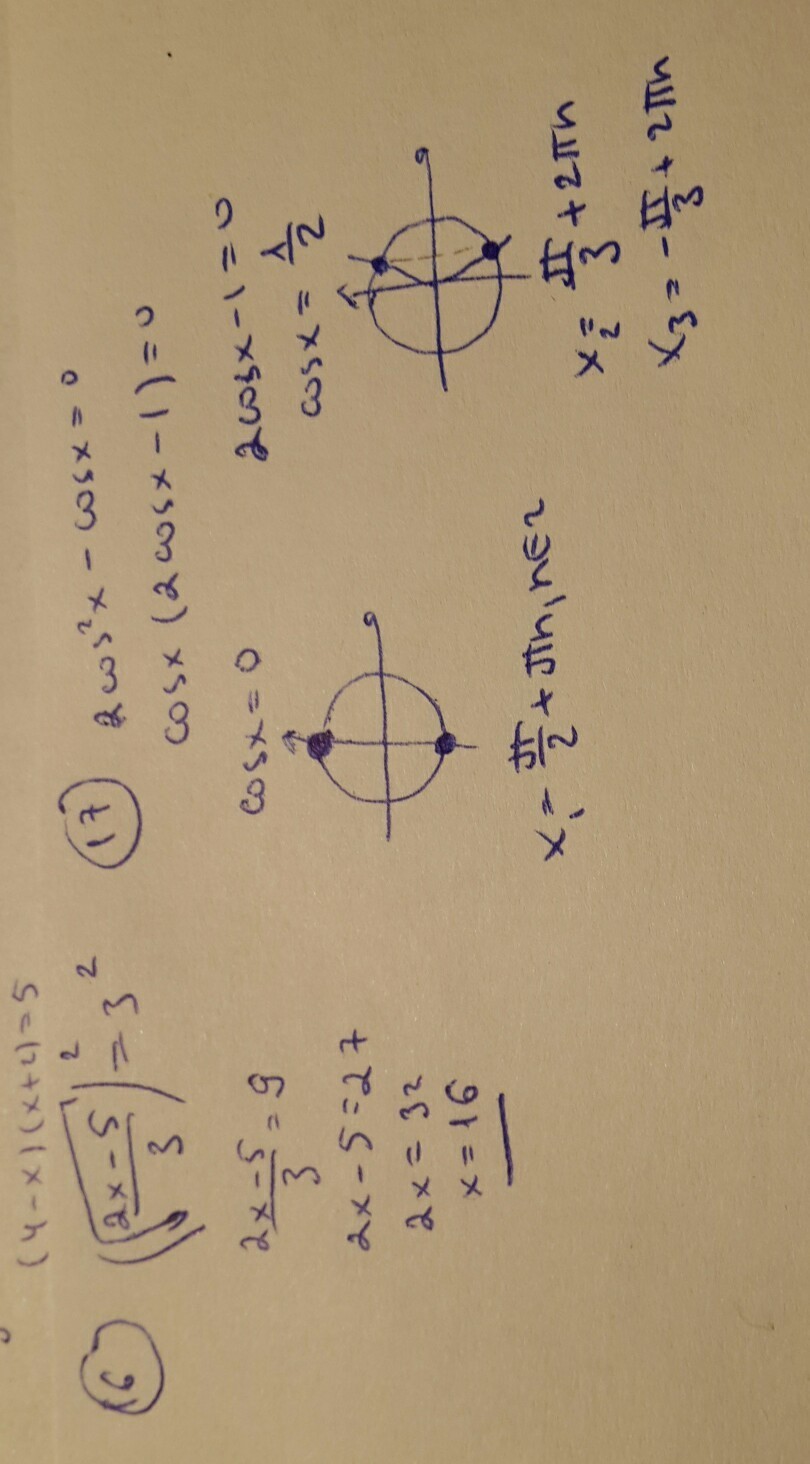 (4-x)(x+4)=5
16 (√((2x-5)/3))² = 3²
(2x-5)/3 = 9
2x-5=27
2x=32
x=16
17 2cos²x - cosx = 0
cosx (2cosx - 1) = 0
cosx = 0
x₁ = π/2 + πn, n∈z
2cosx - 1 = 0
cosx = 1/2
x₂ = π/3 + 2πn
x₃ = -π/3 + 2πn